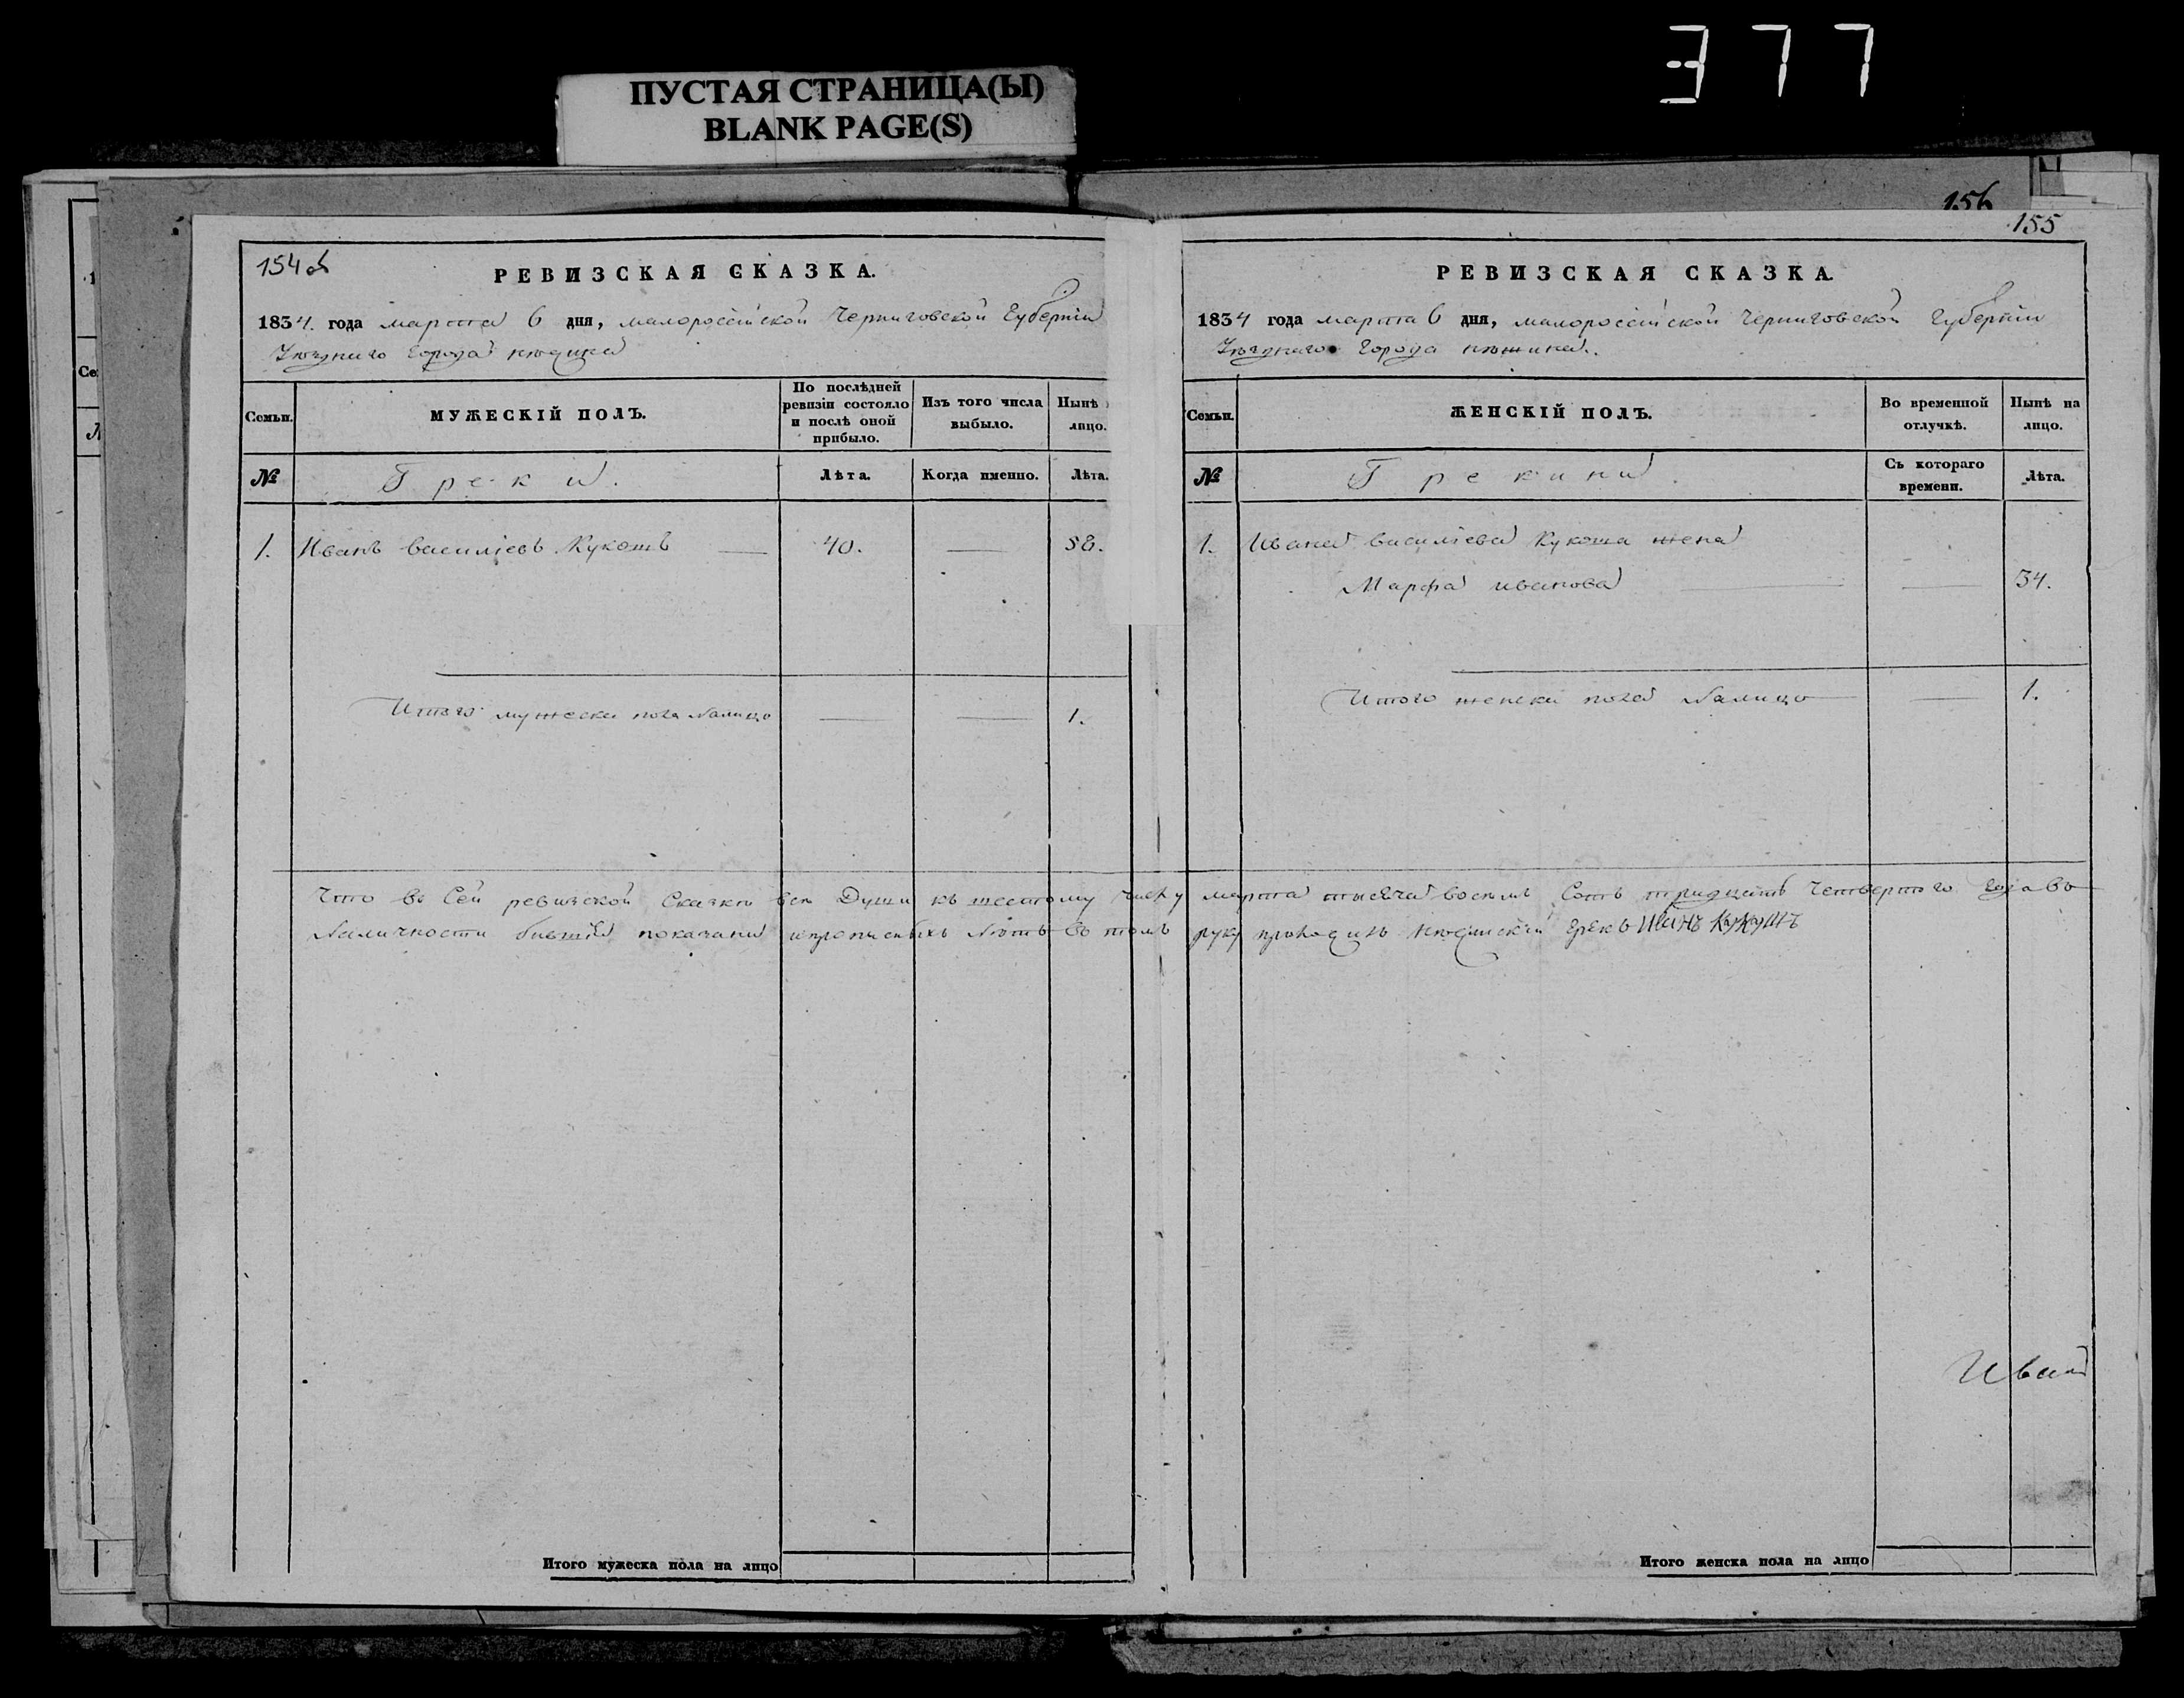 377
ПУСТАЯ СТРАНИЦА(Ы)
BLANK PAGE(S)
156
154 об
РЕВИЗСКАЯ СКАЗКА.
1834. года марта 6 дня, малороссійской Черниговской Губерніи
Уѣзднаго Города нѣжина
Семьи.
МУЖЕСКІЙ ПОЛЪ.
По послѣдней ревизіи состояло и послѣ оной прибыло.
Изъ того числа выбыло.
Нынѣ лицо.
№
Греки.
Лѣта.
Когда именно.
Лѣта.
1. Иванъ василіевъ Кукошъ — 40. — 58.
Итого мужеска пола налицо — — 1.
155
РЕВИЗСКАЯ СКАЗКА.
1834 года марта 6 дня, малороссійской Черниговской Губерніи
Уѣзднаго Города нѣжина.
Семьи.
ЖЕНСКІЙ ПОЛЪ.
Во временной отлучкѣ.
Нынѣ на лицо.
№
Грекини.
Съ котораго времени.
Лѣта.
1. Ивана василіева Кукоша жена
Марфа иванова — — 34.
Итого женска пола Налицо — 1.
Что въ Сей ревизской Сказки всѣ Души къ шестому числу марта тысяча восемъ Сотъ тридцать Четвертого Года въ
Наличности бывшіи показани лѣтъ въ томъ руку нѣжинскій грекъ Иванъ Кукошъ
Иван
Итого мужеска пола на лицо
Итого женска пола на лицо